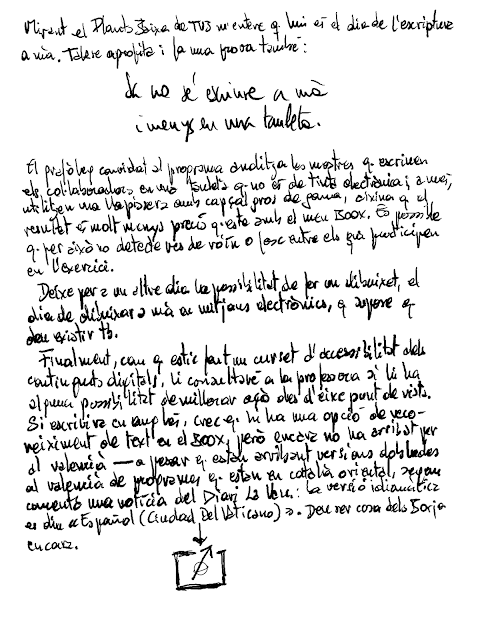 Mirant el Planta Baixa de TV3 m'entere q hui és el dia de l'escriptura
a mà. Talere aprofite i fa una prova també:
Ja no sé escriure a mà
i menys en una tauleta.
El grafòleg convidat al programa analitza les mostres q escriuen
els col·laboradors en una tauleta q no és de tinta electrònica; a més,
utilitzen una llapissera amb capçal gros de goma, aixina q el
resultat és molt menys precís q este amb el meu Boox. És possible
q per això no detecte res de roín o fosc entre els q participen
en l'exercici.
Deixe per a un altre dia la possibilitat de fer un dibuixet, el
dia de dibuixar a mà en mitjans electrònics, q supose q
deu existir tb.
Finalment, com q estic fent un curset d'accessibilitat dels
continguts digitals, li consultaré a la professora si hi ha
alguna possibilitat de millorar açò des d'eixe punt de vista.
Si escrivira en anglés, crec q hi ha una opció de reco-
neiximent de text en el Boox, però encara no ha arribat per
al valencià — a pesar q estan arribant versions doblades
al valencià de programes q estan en català oriental, segons
comenta una notícia del Diari La Veu: «la versió idiomàtica
es diu «Español (Ciudad Del Vaticano)». Deu ser cosa dels Borja
encara.